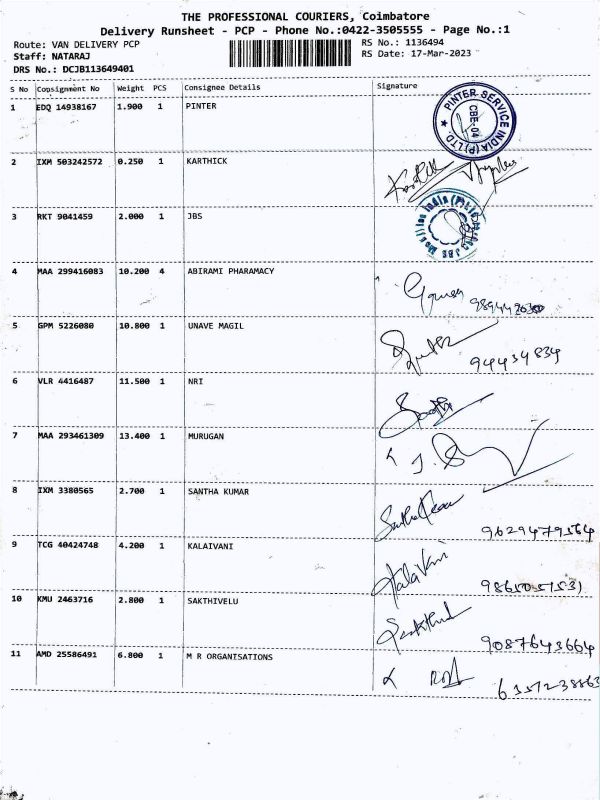 THE PROFESSIONAL COURIERS, Coimbatore
Delivery Runsheet - PCP - Phone No.:0422-3505555 - Page No.:1
Route: VAN DELIVERY PCP
Staff: NATARAJ
DRS No.: DCJB113649401
RS No.: 1136494
RS Date: 17-Mar-2023
S No Consignment No Weight PCS Consignee Details Signature
1 EDQ 14938167 1.900 1 PINTER
PINTER SERVICE INDIA (P) LTD. ★ CBE-04
2 IXM 503242572 0.250 1 KARTHICK
Karthick
3 RKT 9041459 2.000 1 JBS
4 MAA 299416083 10.200 4 ABIRAMI PHARAMACY
5 GPM 5226080 10.800 1 UNAVE MAGIL
94434834
6 VLR 4416487 11.500 1 NRI
7 MAA 293461309 13.400 1 MURUGAN
8 IXM 3380565 2.700 1 SANTHA KUMAR
9629479564
9 TCG 40424748 4.200 1 KALAIVANI
Kalaivani
10 KMU 2463716 2.800 1 SAKTHIVELU
9087643664
11 AMD 25586491 6.800 1 M R ORGANISATIONS